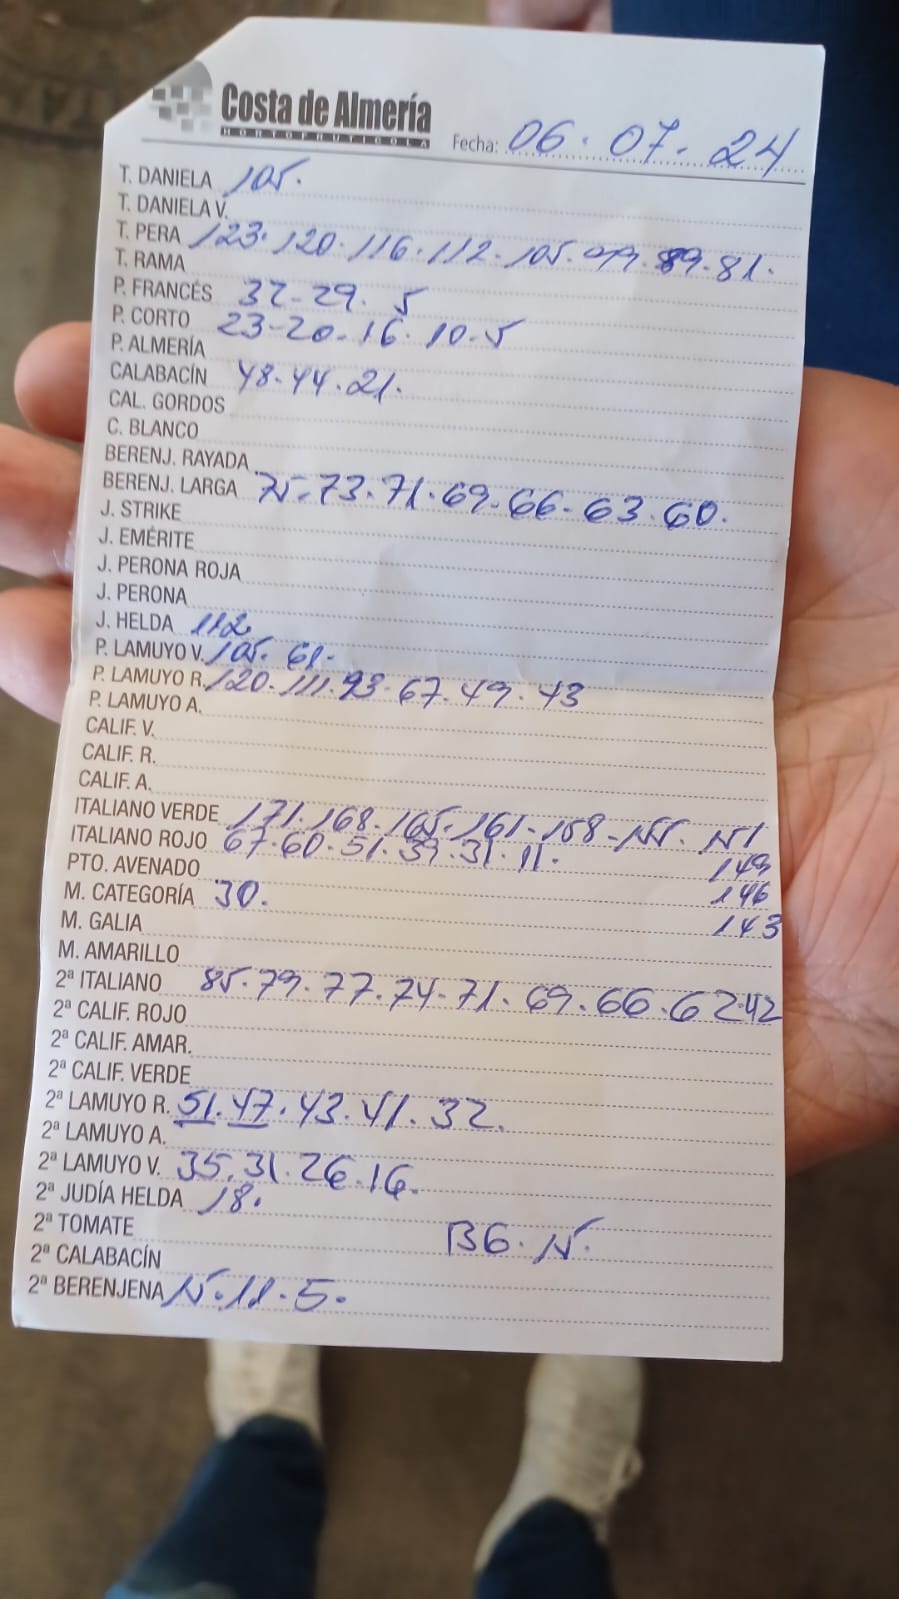 Costa de Almería
HORTOFRUTICOLA
Fecha: 06.07.24
T. DANIELA 105.
T. DANIELA V.
T. PERA 123.120.116.112.105.99.89.81.
T. RAMA
P. FRANCÉS 32-29.5
P. CORTO 23-20-16.10-5
P. ALMERÍA
CALABACÍN 48.44.21.
CAL. GORDOS
C. BLANCO
BERENJ. RAYADA
BERENJ. LARGA 75-73.71.69-66-63.60.
J. STRIKE
J. EMÉRITE
J. PERONA ROJA
J. PERONA
J. HELDA 112
P. LAMUYO V. 105.61.
P. LAMUYO R. 120.111.93.67.49.43
P. LAMUYO A.
CALIF. V.
CALIF. R.
CALIF. A.
ITALIANO VERDE 171.168-165.161-158-155.151
ITALIANO ROJO 67.60.51.39.31.11.
149
PTO. AVENADO
146
M. CATEGORÍA 30.
143
M. GALIA
M. AMARILLO
2ª ITALIANO 85.79.77.74-71.69.66.62.42
2ª CALIF. ROJO
2ª CALIF. AMAR.
2ª CALIF. VERDE
2ª LAMUYO R. 51.47.43.41.32.
2ª LAMUYO A.
2ª LAMUYO V. 35.31.26.16.
2ª JUDÍA HELDA 18.
2ª TOMATE
BG.15.
2ª CALABACÍN
2ª BERENJENA 15.11.5.